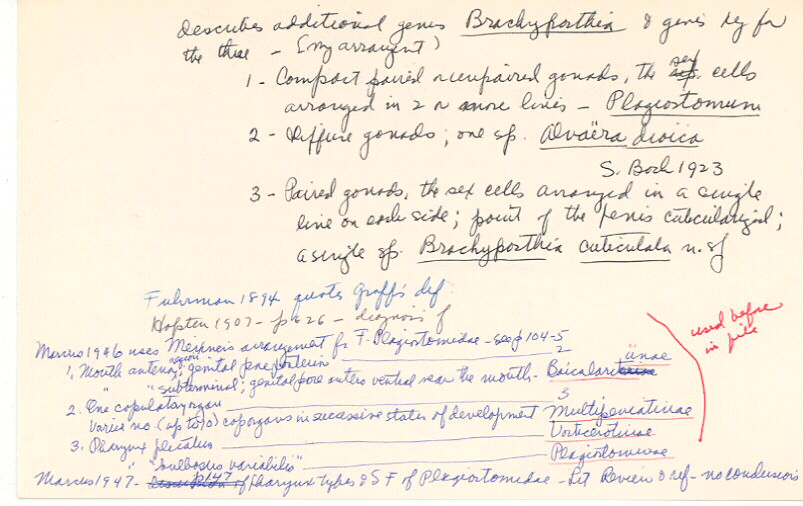 describes additional genus Brachyposthia & gives key for
the three - (my arrangmt)
1 - Compact paired or unpaired gonads, the sex cells
arranged in 2 or more lines - Plagiostomum
2 - Diffuse gonads; one sp. Alvaëra dioica
S. Bock 1923
3 - Paired gonads, the sex cells arranged in a single
line on each side; point of the penis cuticularized;
a single sp. Brachyposthia cuticulata n. sp
Fuhrman 1894 quotes Graff's def.
Hofsten 1907 - p 626 - diagnosis of
Marcus 1946 uses Meixner's arrangement for F. Plagiostomidae - see p 104-5
1. Mouth anterior region; genital pore posterior 2
" subterminal; genital pore antero ventral near the mouth - Baicalariinae
2. One copulatory organ 3
Varies no. (up to 10) cop organs in successive states of development Multipeniatinae
3. Pharynx plicatus Vorticerotinae
" "bulbosus variabilis" Plagiostominae
Marcus 1947 - p 147 of pharynx types & S F of Plagiostomidae - Lit Review & ref - no conclusions
used before
in file